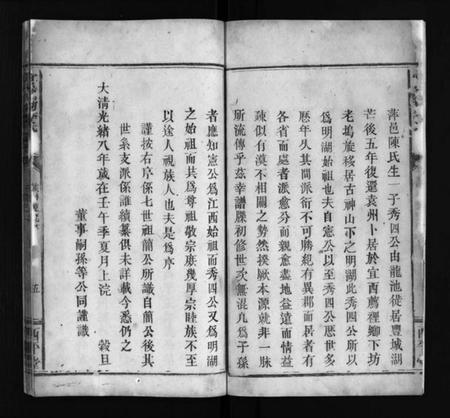 萍邑陳氏生一子秀四公由龍池徙居豐城湖
芒後五年復還袁州卜居於宜西薦裡鄉下坊
老塢旋移居古神山下之明湖此秀四公所以
爲明湖始祖也夫自憲公以至秀四公歷世多
歷年久其間派衍不可勝紀有異郡而居者有
各省而處者派愈分而親愈盡地益遠而情益
疎似有漠不相關之勢然揆厥本源就非一脉
所流傳乎茲幸譜牒初修世次無混凡爲子孫
者應知憲公爲江西始祖而秀四公又爲明湖
之始祖而共爲尊祖敬宗庶幾厚宗睦族不至
以途人視族人也夫是爲序
謹按右序係七世祖蘭公所識自蘭公後其
世系支派係誰續纂俱未詳載今悉仍之
大清光緒八年歲在壬午季夏月上浣 穀旦
董事嗣孫等公同謹識
五